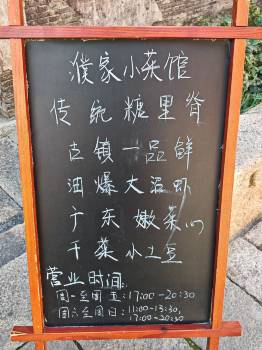 濮家小菜馆
传统糖里脊
古镇一品鲜
油爆大河虾
广东嫩菜心
干菜小土鱼
营业时间:
周一至周五:17:00-20:30
周六至周日:11:00-13:30,
17:00-20:30